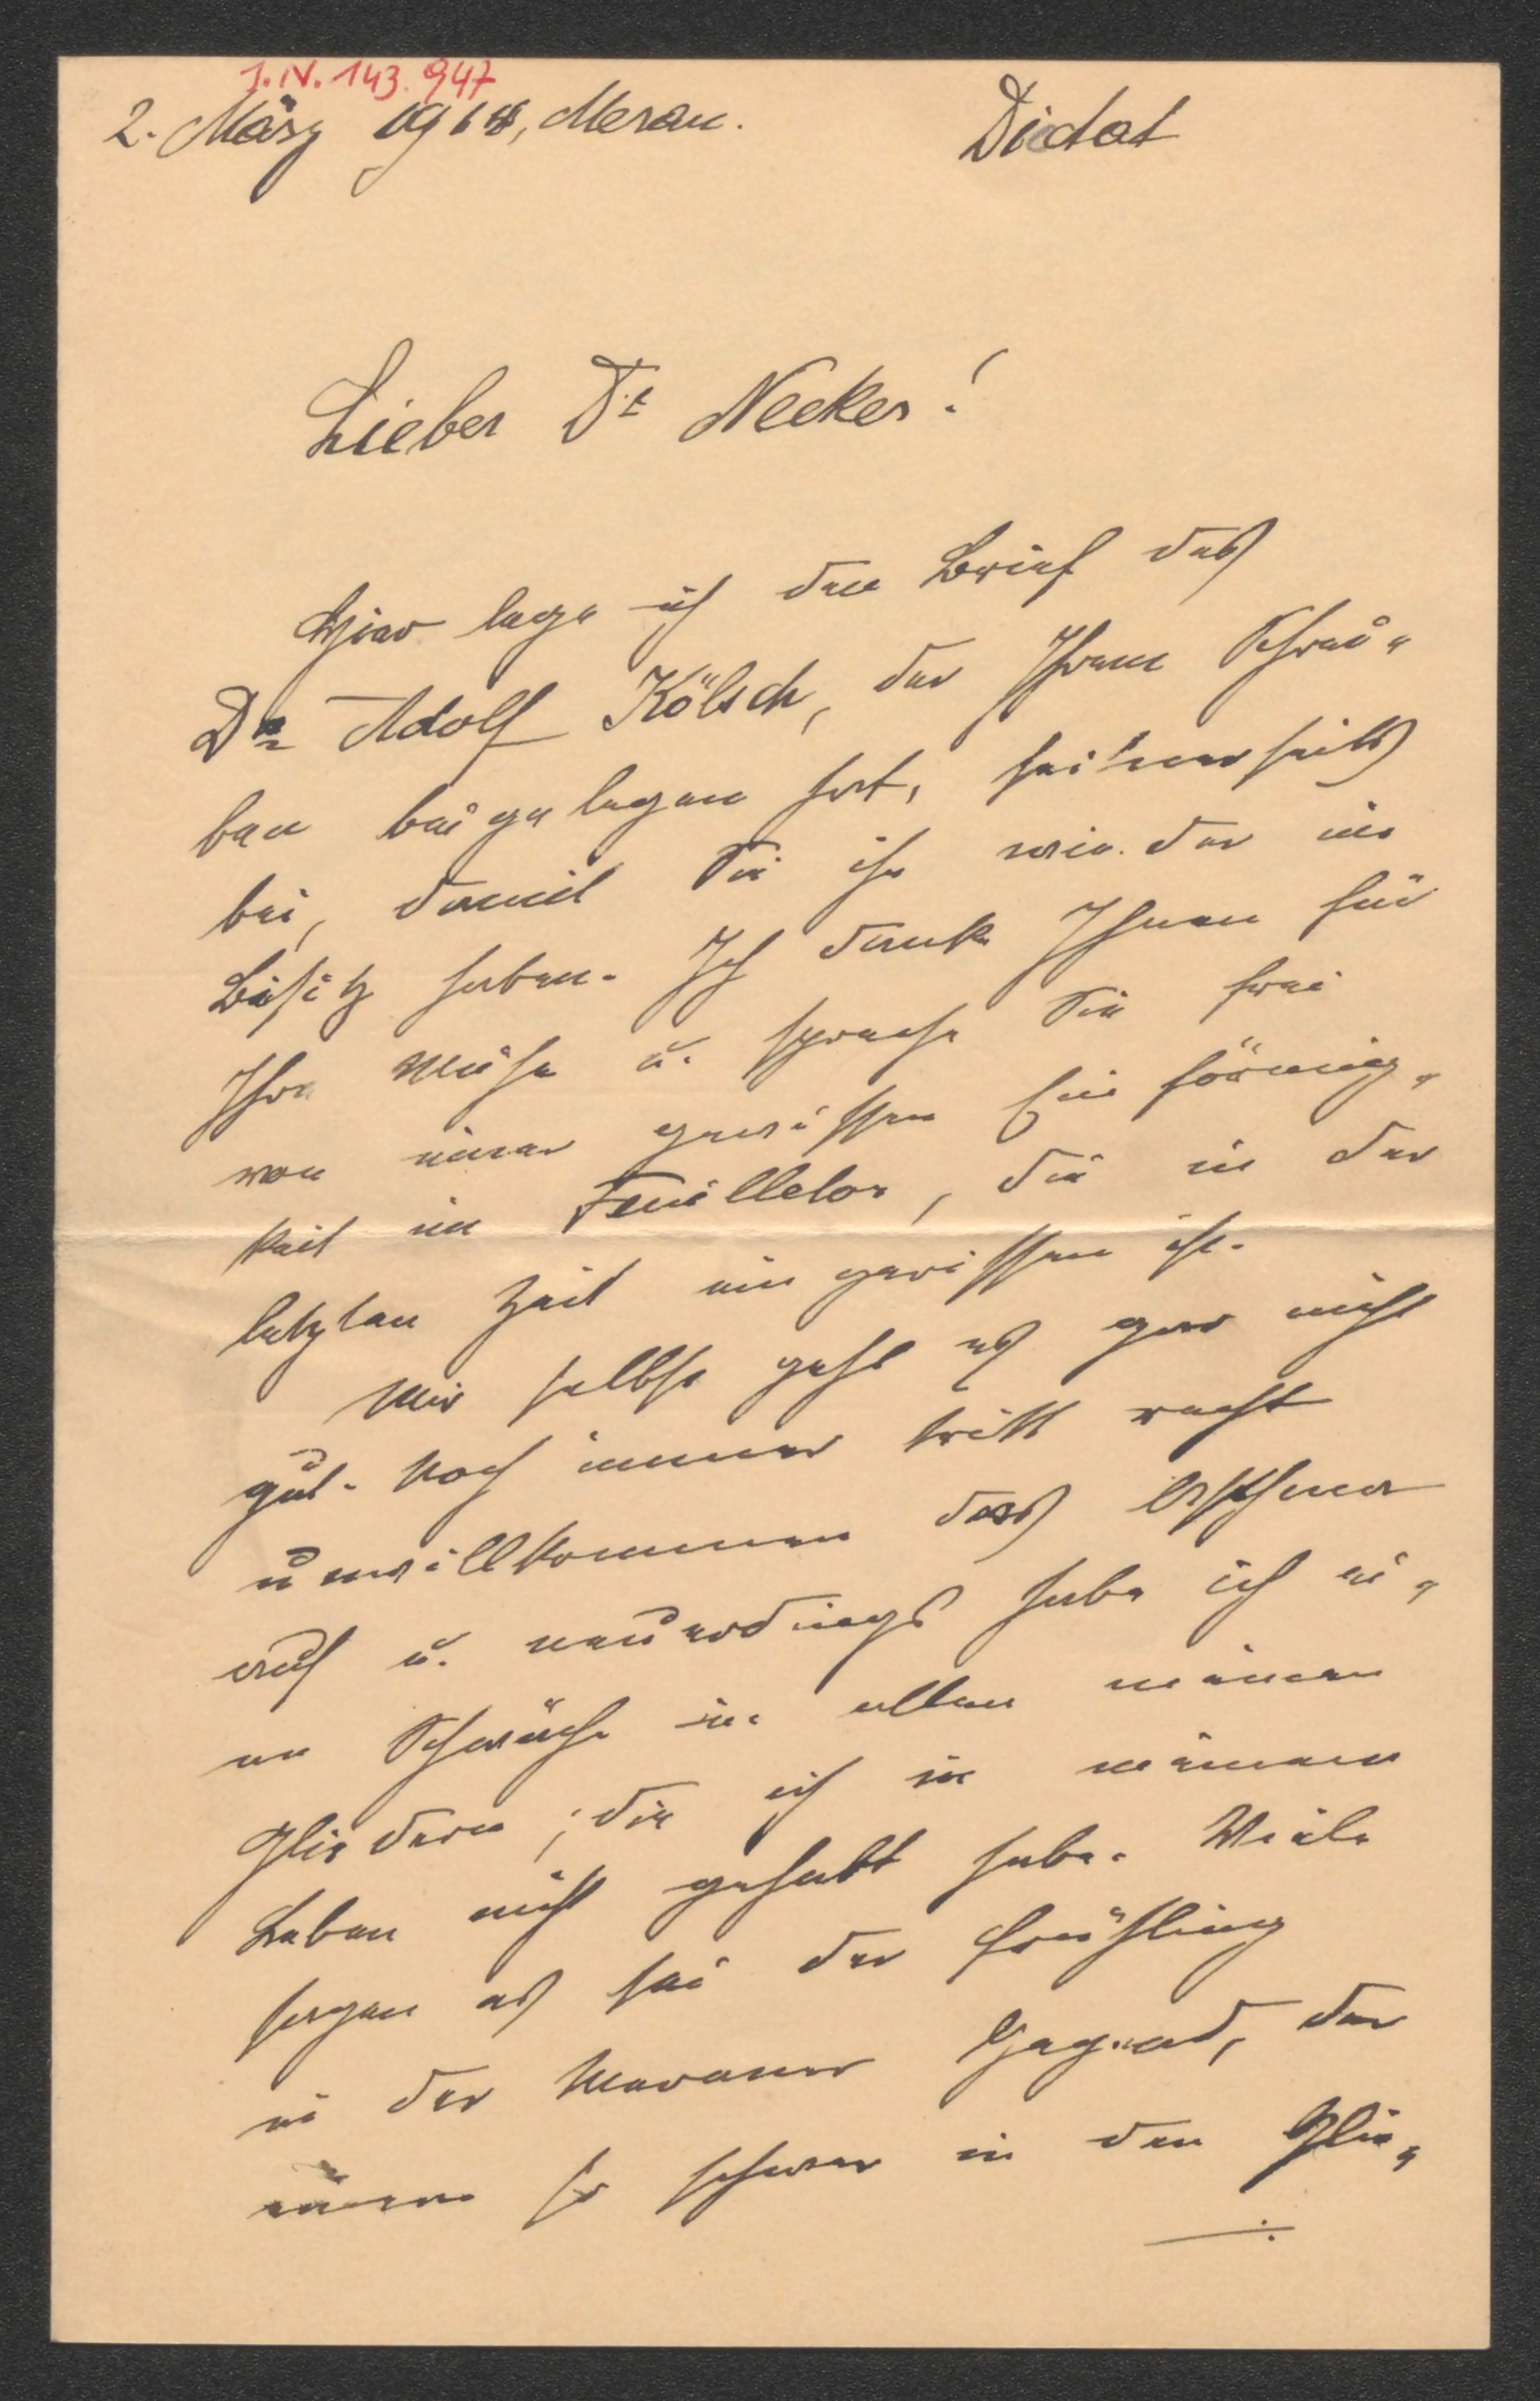 J.N. 143.947
2. März 1918, Meran.
Dictat
Lieber Dr Necker!
Hier lege ich den Brief des
Dr Adolf Kölsch, der Ihrem Schrei-
ben beigelegen hat, seinerseits
bei, damit Sie ihn wieder im
Besitz haben. Ich danke Ihnen für
Ihre Mühe u. spreche Sie frei
von einer gewissen Einförmig-
keit im Feuilleton, die in der
letzten Zeit eingerissen ist.
Mir selbst geht es gar nicht
gut. Noch immer tritt recht
unwillkommen das Asthma
auf u. neuerdings habe ich ei-
ne Schwäche in allen meinen
Gliedern, die ich in meinem
Leben nicht gehabt habe. Viele
sagen es sei der Frühling
in der Meraner Gegend, der
einem so schwer in den Glie-